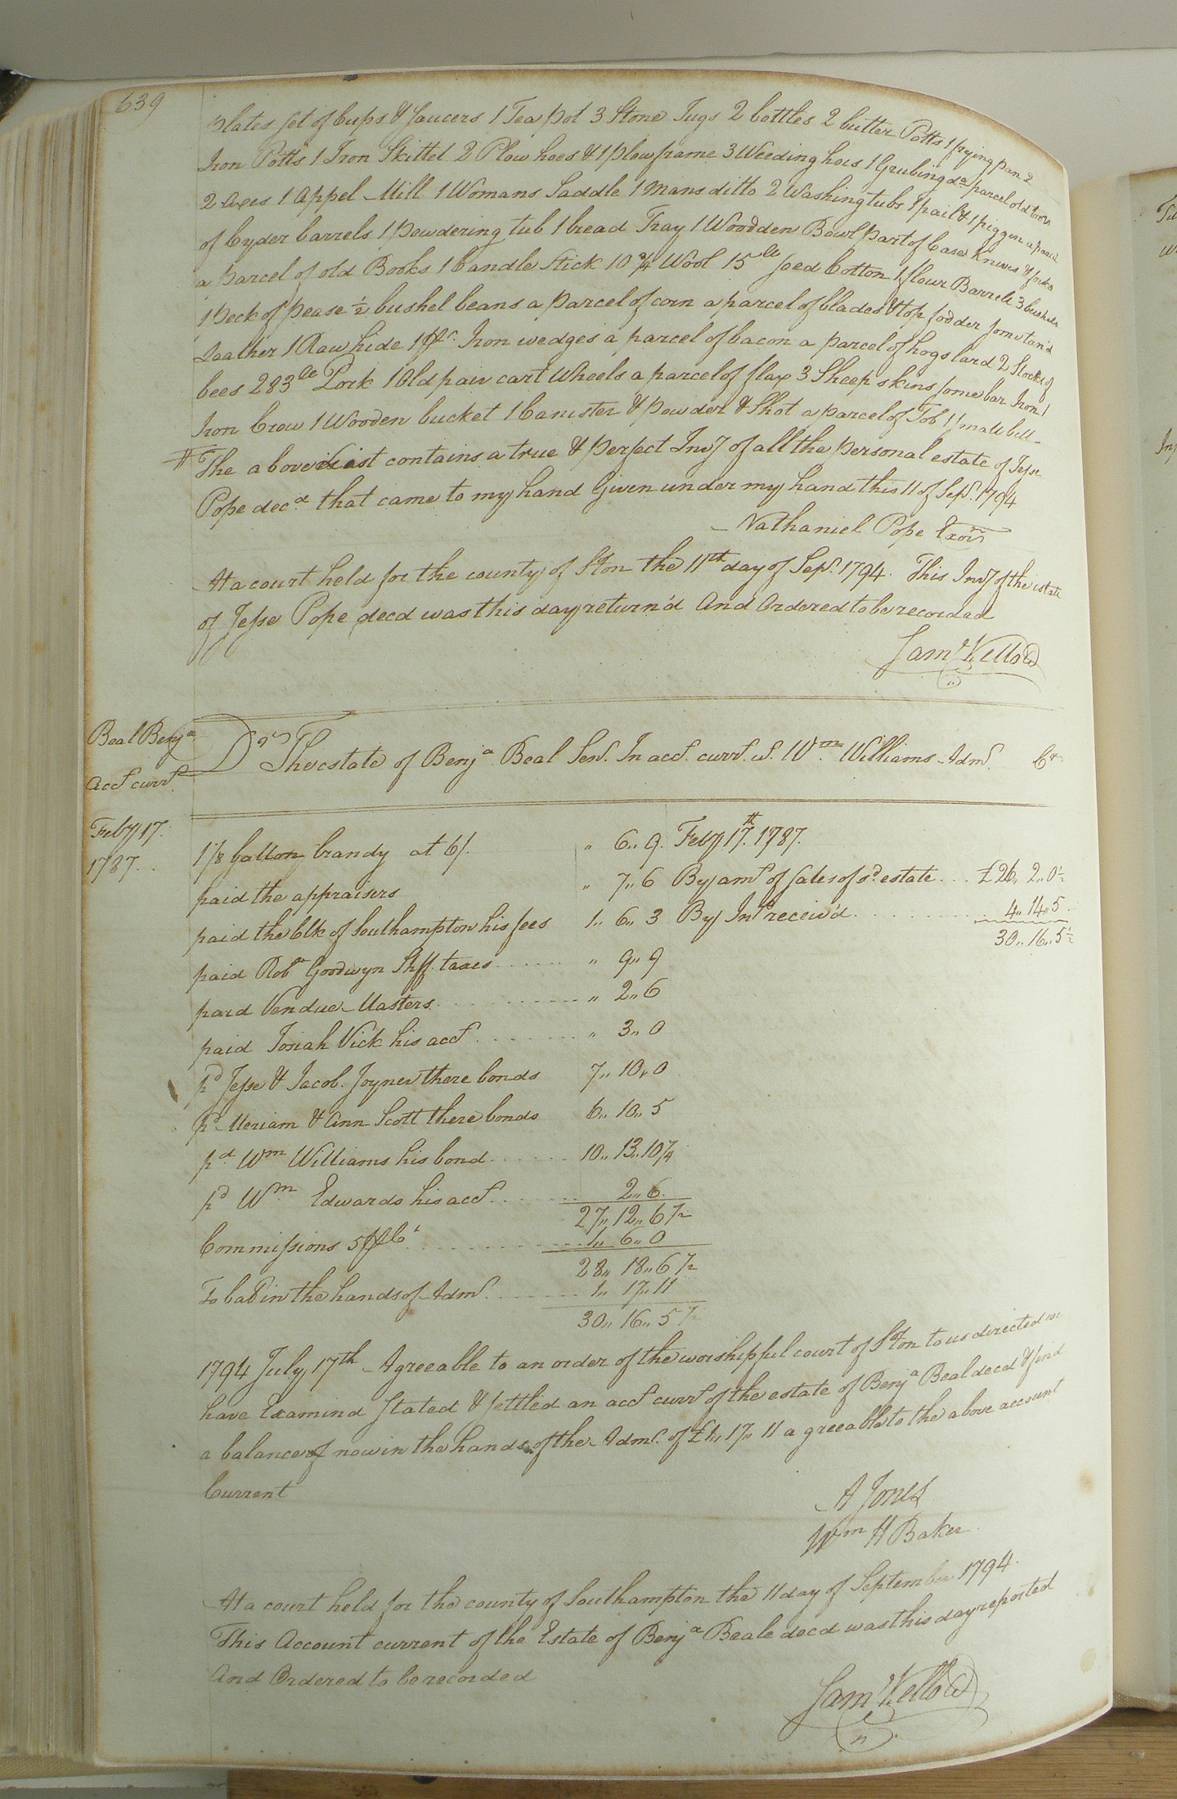 639
plates set of Cups & Saucers 1 Tea pot 3 Stone Jugs 2 bottles 2 butter Potts 1 frying pan 2
Iron Potts 1 Iron Skittel 2 Plow hoes & 1 plow frame 3 Weeding hoes 1 Grubing do parcel old
2 axes 1 Appel Mill 1 Womans Saddle 1 Mans ditto 2 Washing tubs 1 pail & 1 piggon a parcel
of Cyder barrels 1 powdering tub 1 bread Tray 1 Woodden Bowl part of Case Knives & forks
a parcel of old Books 1 Candle Stick 10 ¾ Wool 15 lb seed Cotton 1 flour Barrels 3 bushels
1 peck of pease ½ bushel beans a parcel of corn a parcel of blades & top fodder some tan'd
Leather 1 Raw hide 1 Iron wedges a parcel of bacon a parcel of hogs lard 2 Stocks of
bees 283 lb Pork 1 Old pair cart Wheels a parcel of flax 3 Sheep skins some bar Iron 1
Iron Crow 1 Wooden bucket 1 Canister & powder & Shot a parcel of Tob 1 small bell
The above list contains a true & perfect Invy of all the personal estate of Jesse
Pope decd that came to my hand Given under my hand this 11 of Sept. 1794
Nathaniel Pope Exor
At a court held for the county of Ston the 11th day of Sept. 1794. This Invy of the estate
of Jesse Pope decd was this day return'd And Ordered to be recorded
Saml Kello
Beal Benja
acct currt.
Dr The estate of Benja Beal Senr. In acct. currt. w. Wm Williams Admr. Cr
Feby 17.
1787.
1⅛ Gallon brandy at 6/. " 6.. 9. Feby 17th. 1787.
paid the appraisers " 7.. 6 By amt of sales of sd estate ... £26.. 2.. 0½
paid the Clk of Southampton his fees 1.. 6.. 3 By Intt receiv'd ........ 4.. 14.. 5
30.. 16.. 5½
paid Robt Goodwyn Shff. taxes ...... " 9.. 9
paid Vendue Masters ........ " 2.. 6
paid Josiah Vick his acct ....... " 3.. 0
pd Jesse & Jacob. Joyner there bonds 7.. 10.. 0
pd Meriam & Ann Scott there bonds 6.. 10.. 5
pd Wm Williams his bond ...... 10.. 13.. 10¼
pd Wm Edwards his acct. ...... 2.. 6
27.. 12.. 6½
Commissions 5 ........ 1.. 6.. 0
28.. 18.. 6½
To bal in the hands of Admr. ...... 1.. 17.. 11
30.. 16.. 5½
1794 July 17th Agreeable to an order of the worshipful court of Ston to us directed we
have Examind Stated & settled an acct currt of the estate of Benja Beal decd & find
a balance of now in the hands of the Admr. of £1.. 17.. 11 a greeable to the above account
Current
A Jones
Wm H Baker
At a court held for the county of Southampton the 11 day of September 1794.
This Account current of the Estate of Benja Beale decd was this day reported
And Ordered to be recorded
Saml Kello